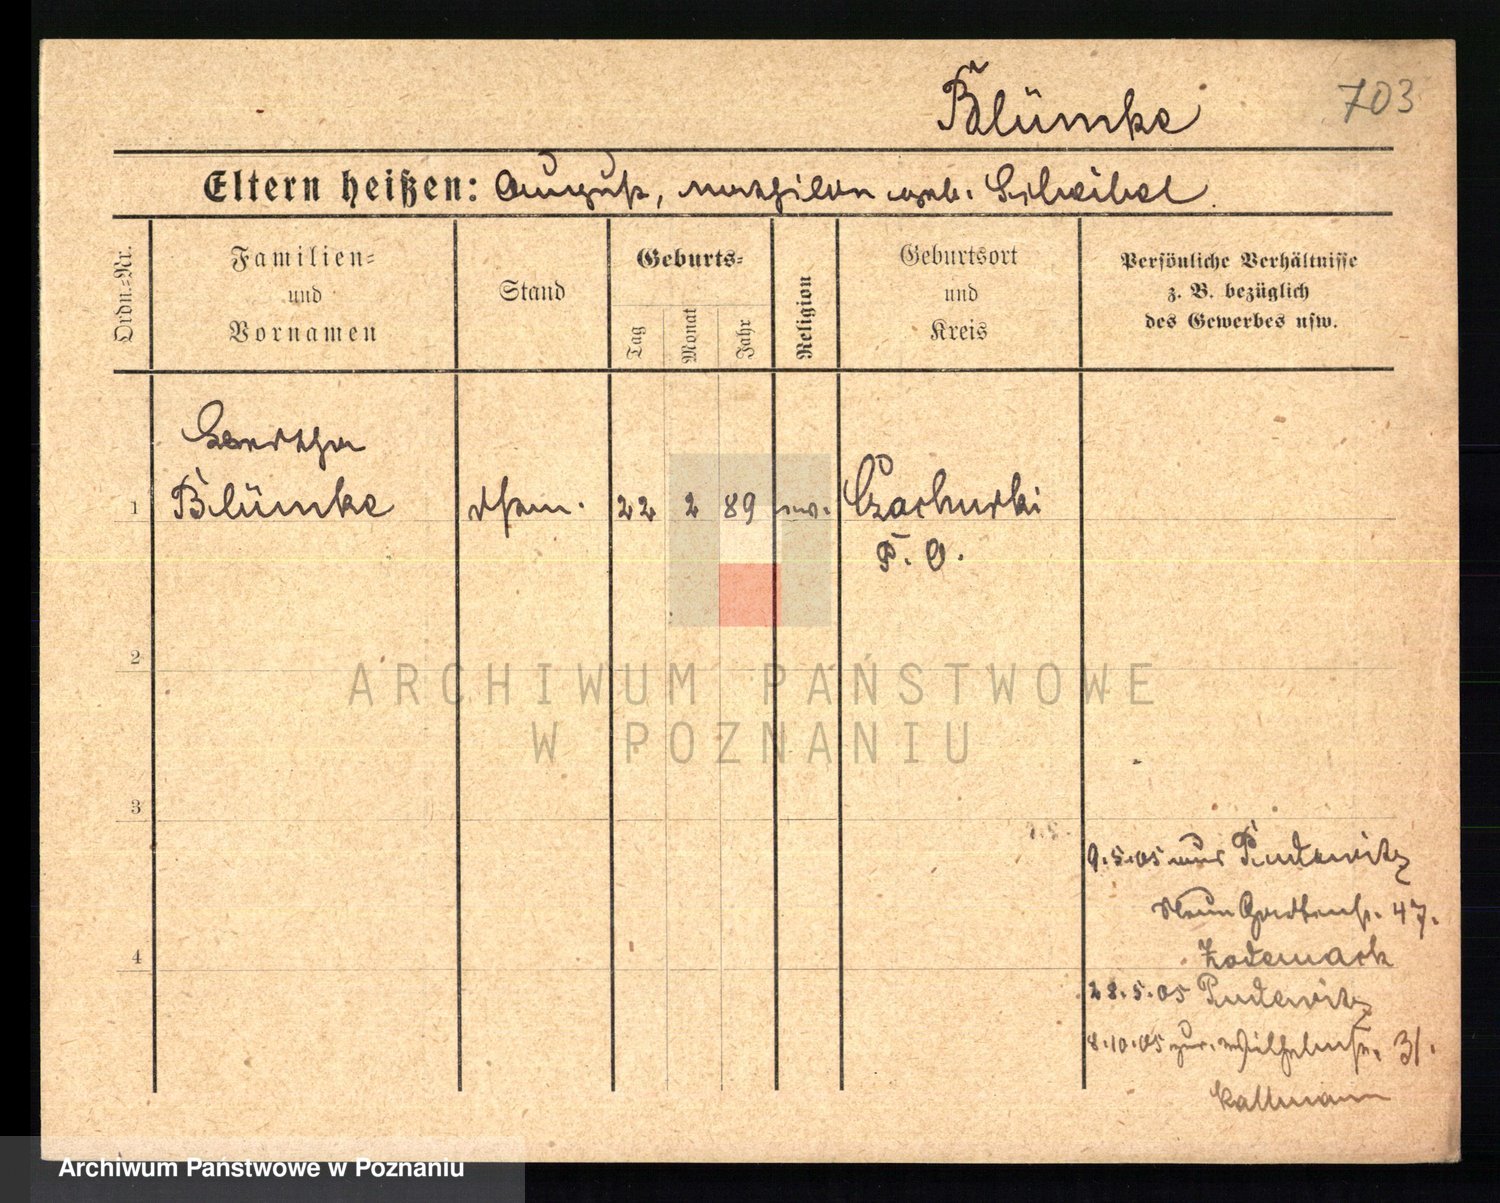 Blümke
703
Eltern heißen: August, Mathilde geb. Scheibel
Ordn.-Nr.
Familien-
und
Vornamen
Stand
Geburts-
Tag
Monat
Jahr
Religion
Geburtsort
und
Kreis
Persönliche Verhältnisse
z. B. bezüglich
des Gewerbes usw.
Bertha
1 Blümke 22 2 89 ev. Czachurki
P. O.
2
3
4
9.5.05 aus Pudewitz
47.
28.5.05 Pudewitz
8.10.05 zur. Wilhelmstr. 31.
Kallmann
ARCHIWUM PAŃSTWOWE
W POZNANIU
Archiwum Państwowe w Poznaniu